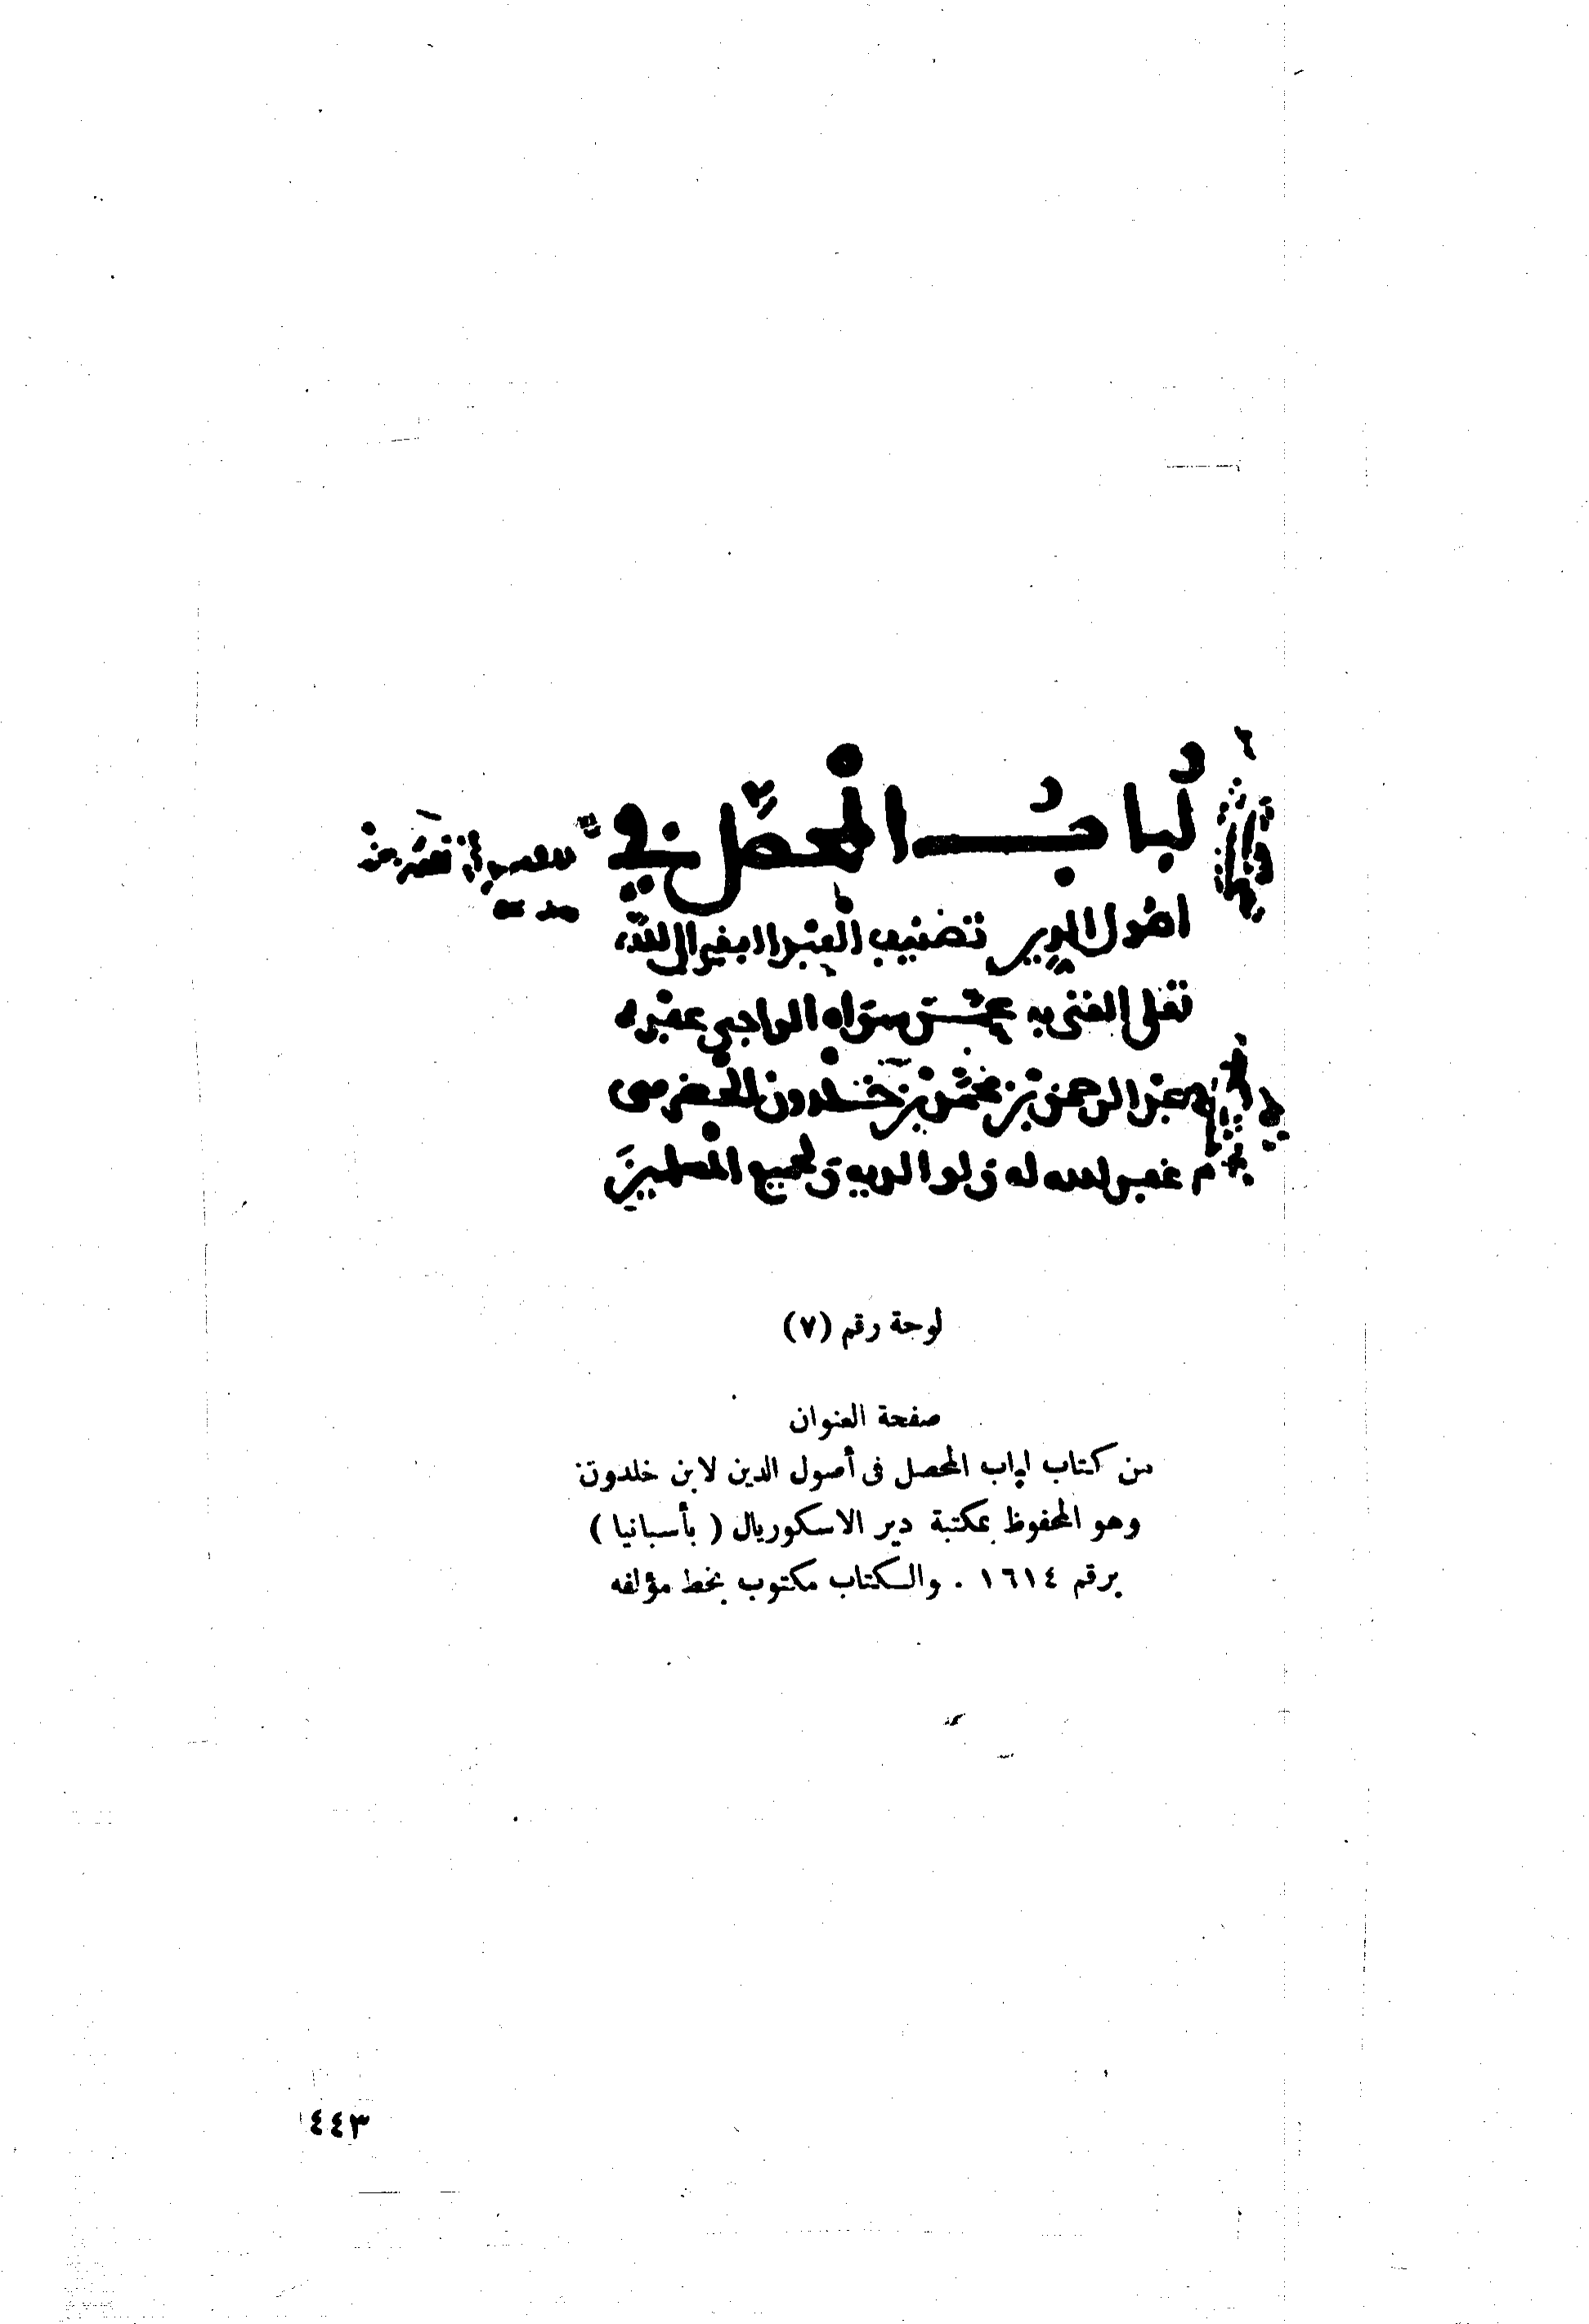 لُبابُ المحصّل في
اصول الدين تصنيف العبد الفقير الى الله
تعلى الغني به عمن سواه الراجي عفوه
عبد الرحمن بن محمد بن خلدون الحضرمي
غفر الله له ولوالديه ولجميع المسلمين
لوحة رقم (٧)
صفحة العنوان
من كتاب لباب المحصل فى أصول الدين لابن خلدون
وهو المحفوظ بمكتبة دير الاسكوريال ( بأسبانيا )
برقم ١٦١٤ . والكتاب مكتوب بخط مؤلفه
٤٤٣